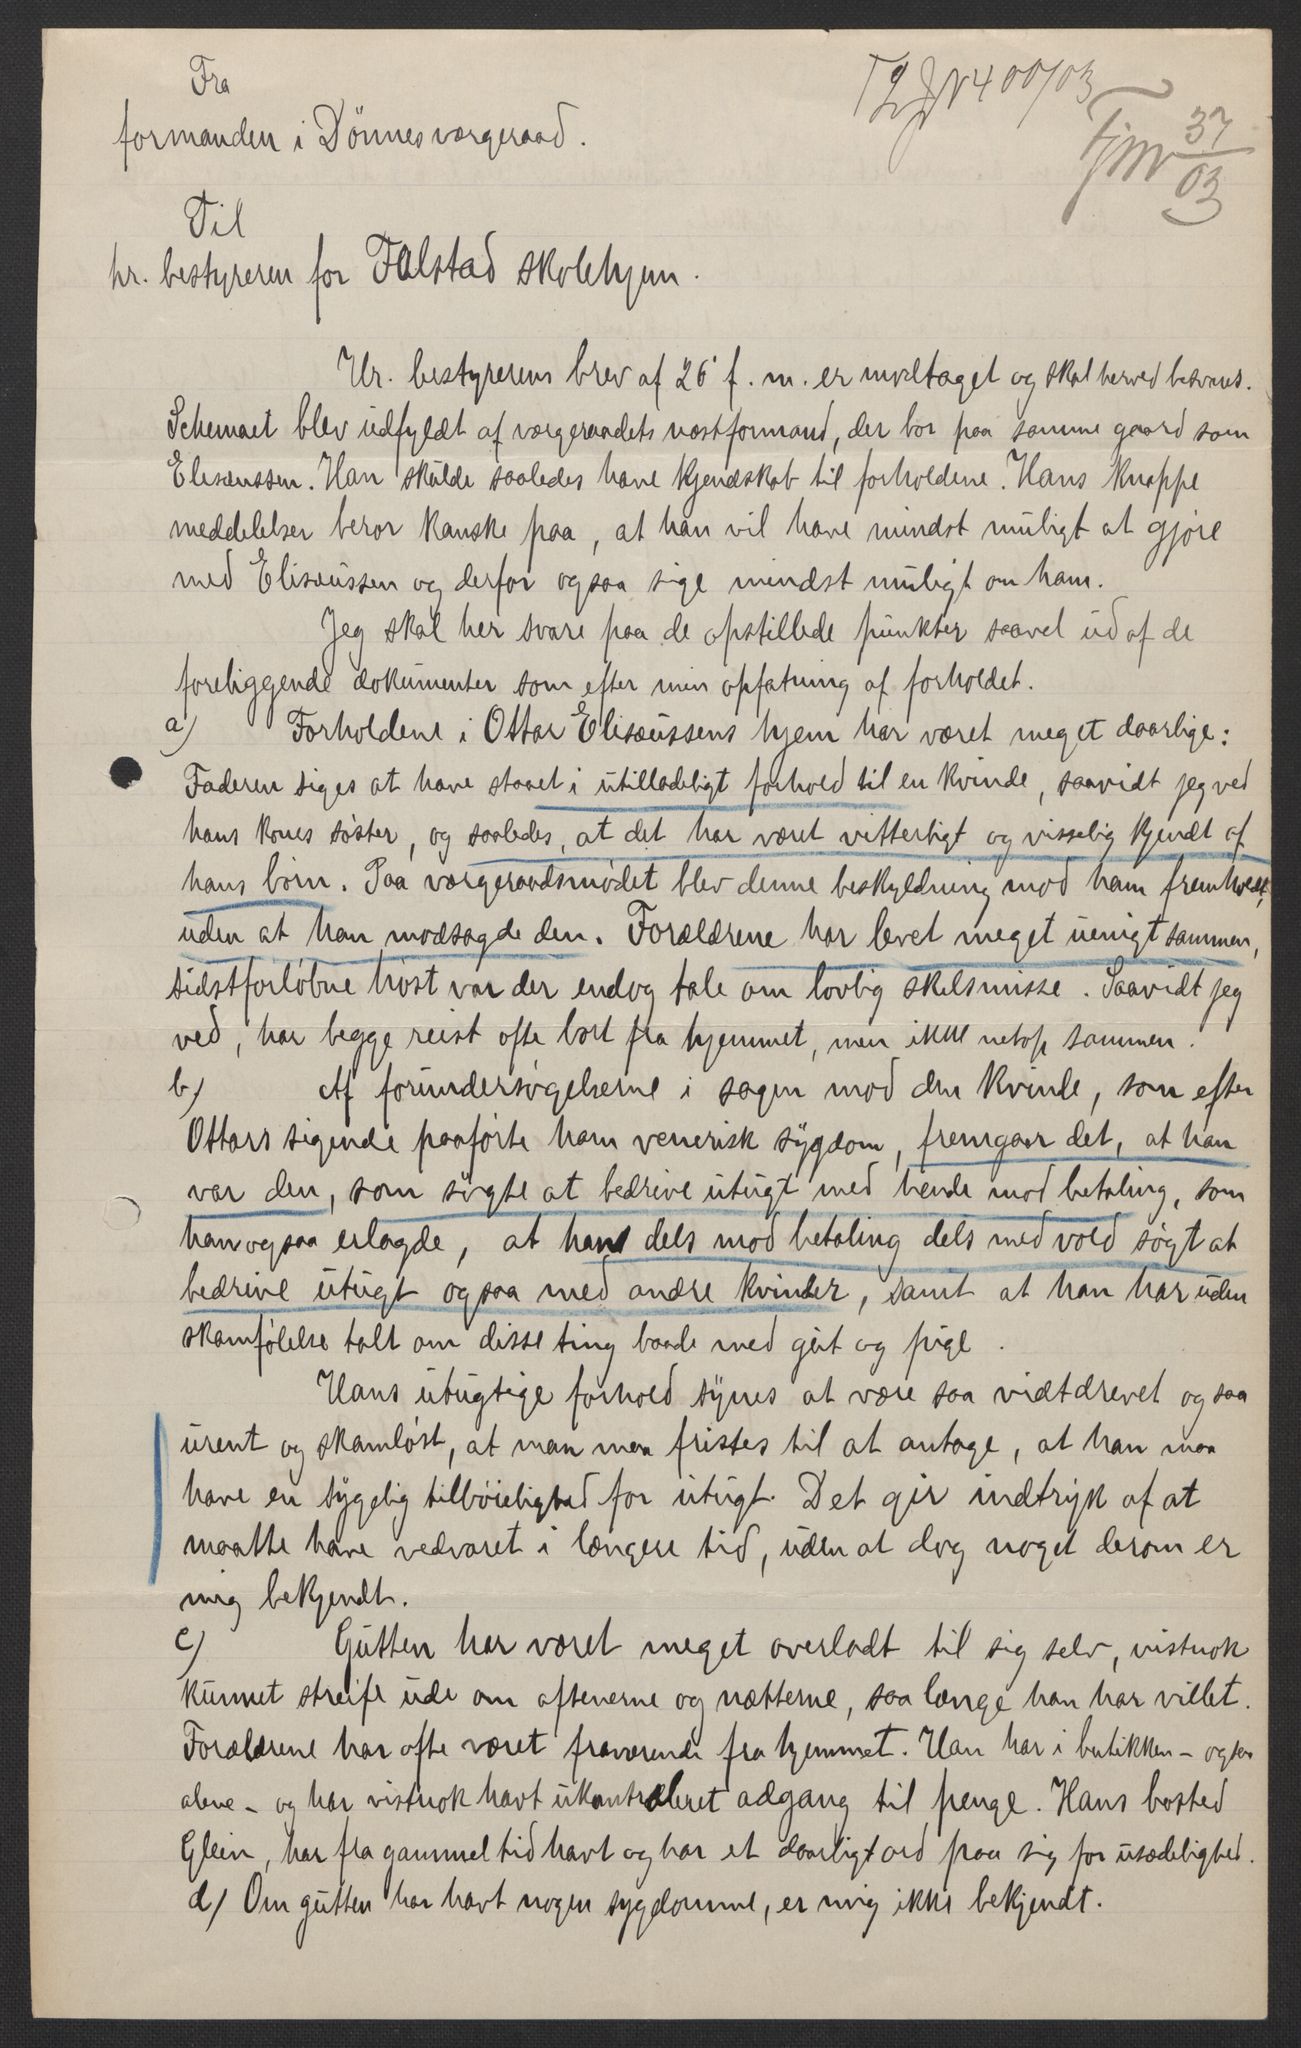 Fra
formanden i Dönnes værgeraad.
400/03
37
03
Til
hr. bestyreren for Falstad skolehjem.
Hr. bestyrerens brev af 26' f. m. er modtaget og skal herved besvares.
Schemaet blev udfyldt af værgeraadets næstformand, der bor paa samme gaard som
Elisæussen. Han skulde saaledes have kjendskab til forholdene. Hans knappe
meddelelser beror kanske paa, at han vil have mindst muligt at gjøre
med Elisæussen og derfor ogsaa sige mindst muligt om ham.
Jeg skal her svare paa de opstillede punkter saavel ud af de
foreliggende dokumenter som efter min opfatning af forholdet.
a) Forholdene i Ottar Elisæussens hjem har været meget daarlige:
Faderen siges at have staaet i utilladeligt forhold til en kvinde, saavidt jeg ved
hans kones søster, og saaledes, at det har været vitterligt og visselig kjendt af
hans børn. Paa værgeraadsmødet blev denne beskyldning mod ham fremholdt,
uden at han modsagde den. Forældrene har levet meget uenigt sammen,
sidstforløbne høst var der endog tale om lovlig skilsmisse. Saavidt jeg
ved, har begge reist ofte bort fra hjemmet, men ikke netop sammen.
b) Af forundersøgelserne i sagen mod den kvinde, som efter
Ottars sigende paaførte ham venerisk sygdom, fremgaar det, at han
var den, som søgte at bedrive utugt med hende mod betaling, som
han ogsaa erlagde, at han dels mod betaling dels med vold søgt at
bedrive utugt ogsaa med andre kvinder, samt at han har uden
skamfølelse talt om disse ting baade med gut og pige.
Hans utugtige forhold synes at være saa vidtdrevet og saa
urent og skamløst, at man maa fristes til at antage, at han maa
have en sygelig tilbøielighed for utugt. Det gir indtryk af at
maatte have vedvaret i længere tid, uden at dog noget derom er
mig bekjendt.
c) Gutten har været meget overladt til sig selv, vistnok
kunnet streife ude om aftenerne og nætterne, saa længe han har villet.
Forældrene har ofte været fraværende fra hjemmet. Han har i butikken – ogsaa
alene – og har vistnok havt ukontroleret adgang til penge. Hans bosted
Glein, har fra gammel tid havt og har et daarligt ord paa sig for usædelighed.
d) Om gutten har havt nogen sygdomme, er mig ikke bekjendt.